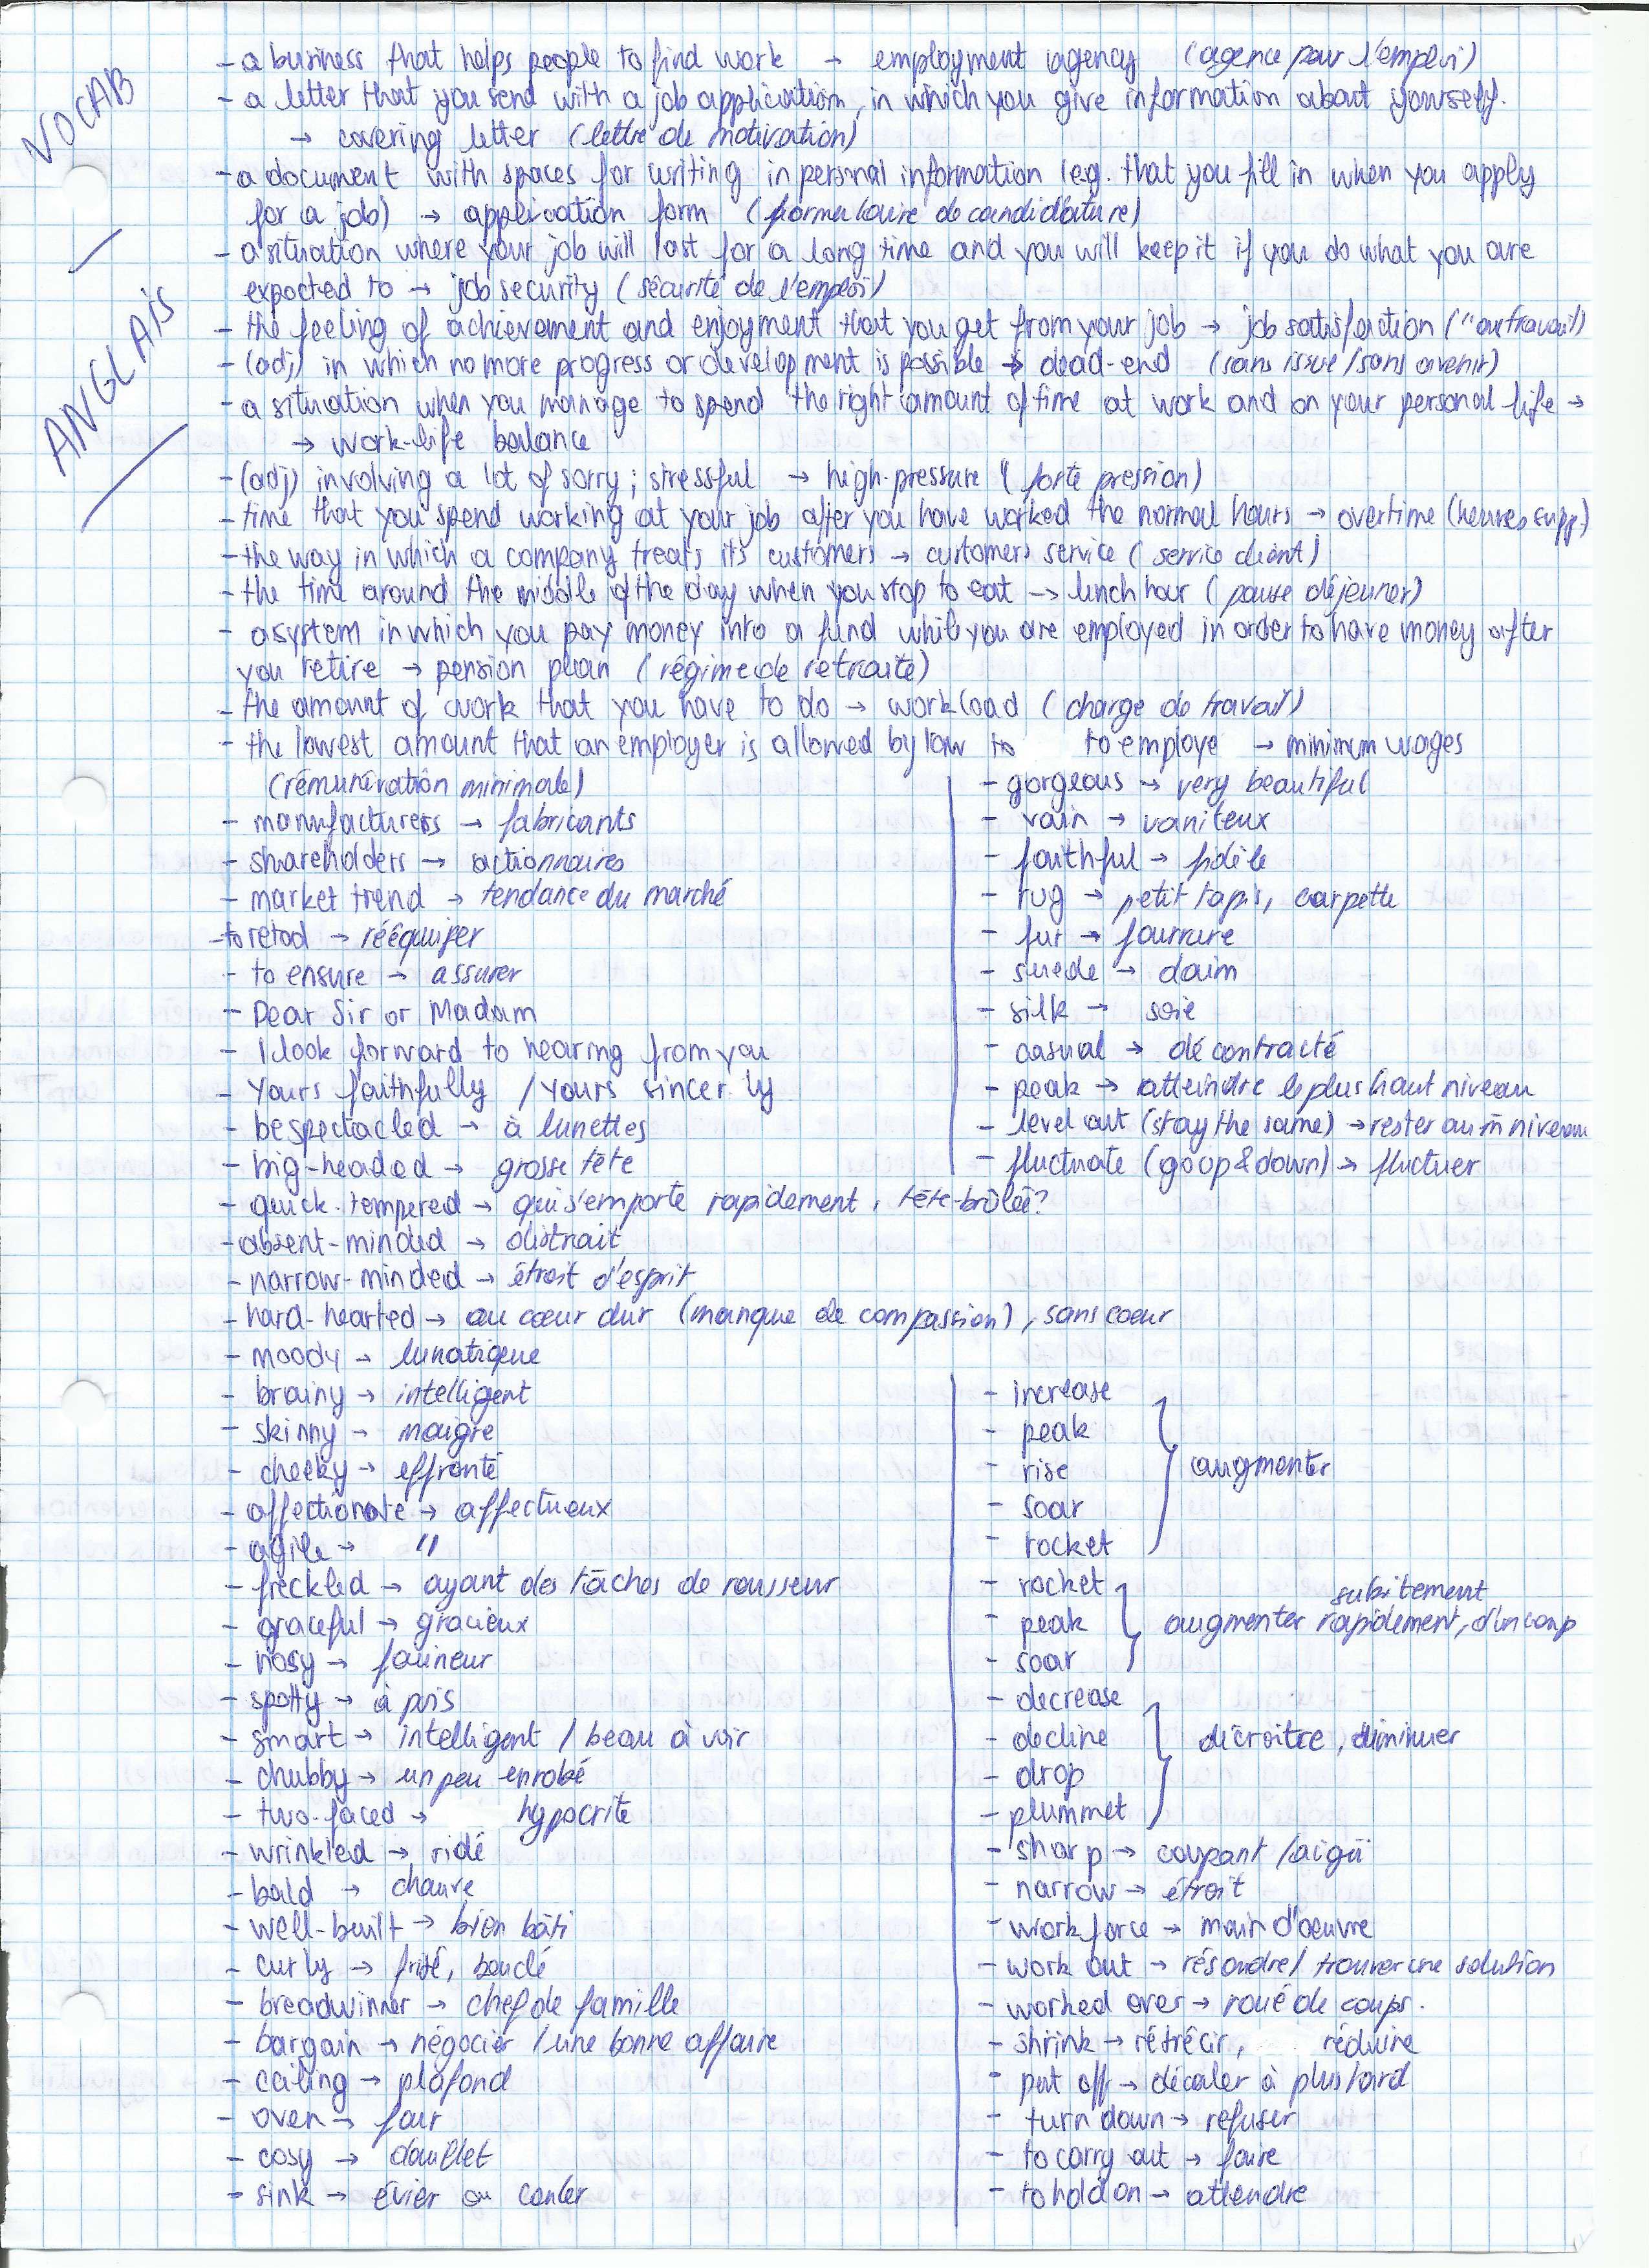 VOCAB
ANGLAIS
- a business that helps people to find work → employment agency (agence pour l'emploi)
- a letter that you send with a job application, in which you give information about yourself.
→ covering letter (lettre de motivation)
- a document with spaces for writing in personal information (e.g. that you fill in when you apply
for a job) → application form (formulaire de candidature)
- a situation where your job will last for a long time and you will keep it if you do what you are
expected to → job security (sécurité de l'emploi)
- the feeling of achievement and enjoyment that you get from your job → job satisfaction ("au travail)
- (adj) in which no more progress or development is possible → dead-end (sans issue/sans avenir)
- a situation when you manage to spend the right amount of time at work and on your personal life →
→ work-life balance
- (adj) involving a lot of sorry; stressful → high-pressure (forte pression)
- time that you spend working at your job after you have worked the normal hours → overtime (heures supp.)
- the way in which a company treats its customers → customers service (service client)
- the time around the middle of the day when you stop to eat → lunch hour (pause déjeuner)
- a system in which you pay money into a fund while you are employed in order to have money after
you retire → pension plan (régime de retraite)
- the amount of work that you have to do → workload (charge de travail)
- the lowest amount that an employer is allowed by law to to employe → minimum wages
(rémunération minimale)
- manufacturers → fabricants
- shareholders → actionnaires
- market trend → tendance du marché
- to retool → rééquiper
- to ensure → assurer
- Dear Sir or Madam
- I look forward to hearing from you
- Yours faithfully / Yours sincer ly
- bespectacled → à lunettes
- big-headed → grosse tête
- quick-tempered → qui s'emporte rapidement, tête-brûlée?
- absent-minded → distrait
- narrow-minded → étroit d'esprit
- hard-hearted → au cœur dur (manque de compassion), sans coeur
- moody → lunatique
- brainy → intelligent
- skinny → maigre
- cheeky → effronté
- affectionate → affectueux
- agile → "
- freckled → ayant des tâches de rousseur
- graceful → gracieux
- nosy → fouineur
- spotty → à pois
- smart → intelligent / beau à voir
- chubby → un peu enrobé
- two-faced → hypocrite
- wrinkled → ridé
- bald → chauve
- well-built → bien bâti
- curly → frisé, bouclé
- breadwinner → chef de famille
- bargain → négocier / une bonne affaire
- ceiling → plafond
- oven → four
- cosy → douillet
- sink → évier ou couler
- gorgeous → very beautiful
- vain → vaniteux
- faithful → fidèle
- rug → petit tapis, carpette
- fur → fourrure
- suede → daim
- silk → soie
- casual → décontracté
- peak → atteindre le plus haut niveau
- level out (stay the same) → rester au m̂ niveau
- fluctuate (go up & down) → fluctuer
- increase
- peak
- rise
- soar
- rocket
augmenter
- rocket
- peak
- soar
subitement
augmenter rapidement, d'un coup
- decrease
- decline
- drop
- plummet
décroitre, diminuer
- sharp → coupant / aigü
- narrow → étroit
- workforce → main d'oeuvre
- work out → résoudre / trouver une solution
- worked over → roué de coups.
- shrink → rétrécir, réduire
- put off → décaler à plus tard
- turn down → refuser
- to carry out → faire
- to hold on → attendre